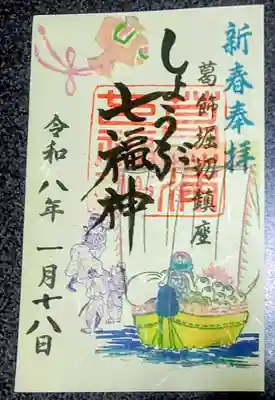 新春奉拝
葛飾堀切鎮座
しょうぶ
七福神
令和八年 一月十八日